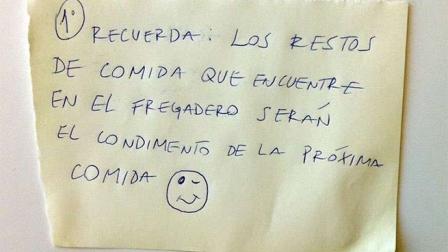 1º RECUERDA: LOS RESTOS
DE COMIDA QUE ENCUENTRE
EN EL FREGADERO SERÁN
EL CONDIMENTO DE LA PRÓXIMA
COMIDA